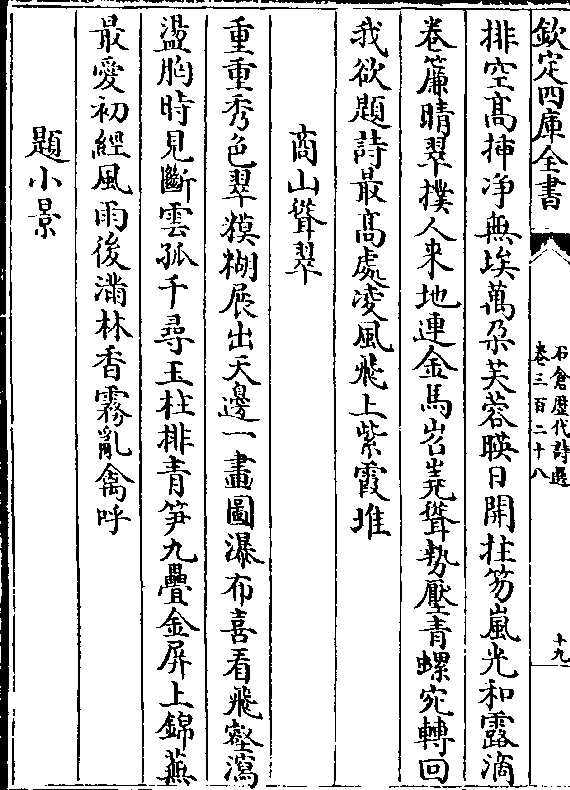 欽定四庫全書
石倉歴代詩選
卷三百二十八
十九
排空髙挿净無埃萬朶芙蓉暎日開拄笏嵐光和露滴
卷簾晴翠撲人来地連金馬岧嶤聳勢壓青螺宛轉回
我欲題詩最髙處凌風飛上紫霞堆
商山聳翠
重重秀色翠糢糊展出天邊一畫圖瀑布喜看飛壑瀉
盪胸時見斷雲孤千尋玉柱排青笋九疊金屏上錦蕪
最愛初經風雨後滿林香霧亂禽呼
題小景